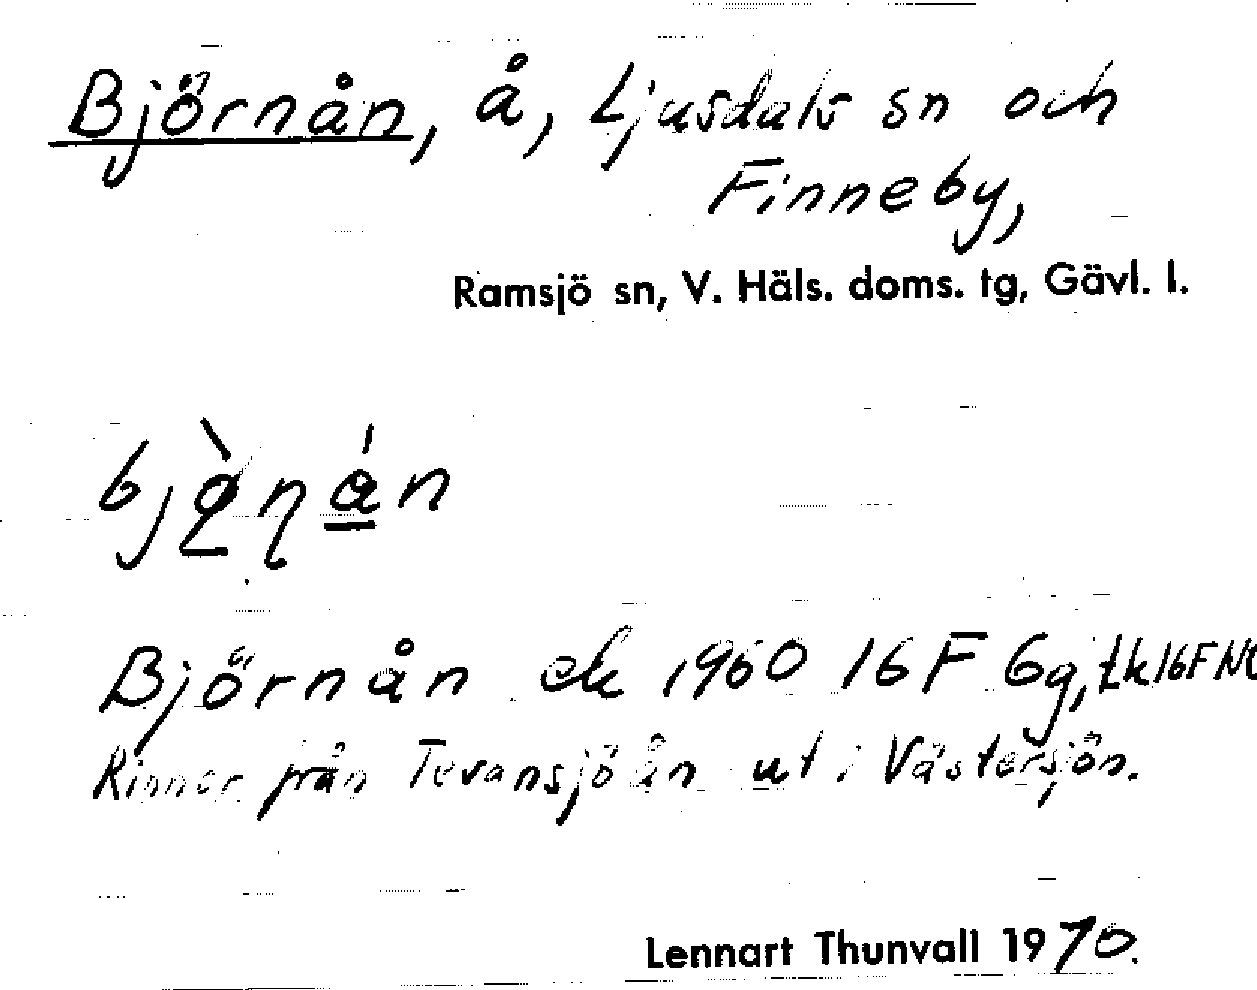 Björnån, å, Ljusdals sn och
Finneby,
Ramsjö sn, V. Häls. doms. tg, Gävl. l.
Björnån ek 1960 16 F 6g, tk 16F NV
Rinner från Tevansjöån ut i Västersjön.
Lennart Thunvall 1970.